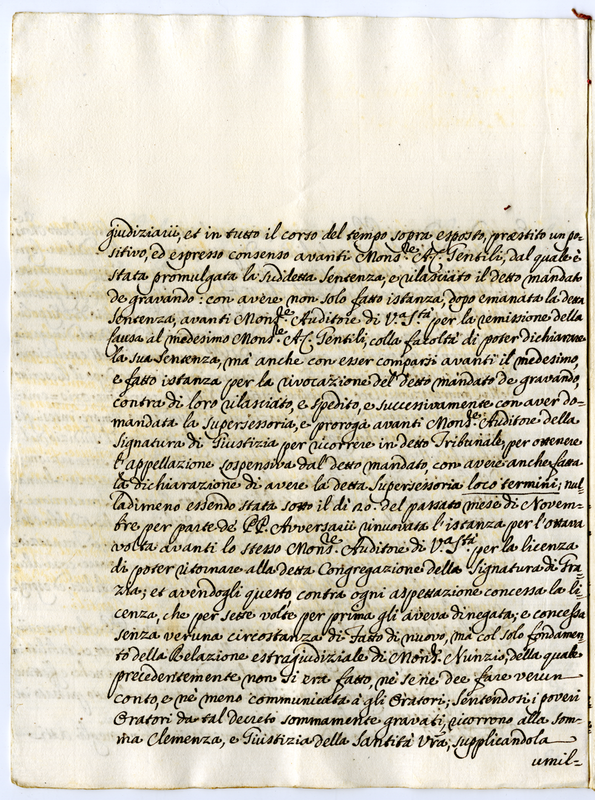 giudiziarii, et in tutto il corso del tempo sopra esposto, præstito un po-
sitivo, ed espresso consenso avanti Mons.re A.C. Gentili, dal quale è
stata promulgata la suddetta Sentenza, e rilasciato il detto mandato
de gravando: con avere non solo fatto istanza, dopo emanata la detta
Sentenza, avanti Mons.re Auditore di V.a S.tà per la remissione della
Causa al medesimo Mons.re A.C. Gentili, colla facoltà di poter dichiarare
la sua Sentenza, mà anche con esser comparsi avanti il medesimo,
e fatto istanza per la rivocazione del detto mandato de gravando,
contra di loro rilasciato, e spedito, e successivamente con aver do-
mandata la supersessoria, e proroga avanti Mons.re Auditore della
Signatura di Giustizia per ricorrere in detto Tribunale, per ottenere
l'appellazione sospensiva dal detto mandato, con avere anche fatta
la dichiarazione di avere la detta supersessoria loco termini; nul-
ladimeno essendo stata sotto il di 20. del passato mese di Novem-
bre per parte de PP. Avversarii rinuovata l'istanza per l'ottava
volta avanti lo stesso Mons.re Auditore di V.a S.tà per la licenza
di poter ritornare alla detta Congregazione della Signatura di Gra-
zia; et avendogli questo contra ogni aspettazione concessa la li-
cenza, che per sette volte per prima gli aveva dinegata; e concessa
senza veruna circostanza di fatto di nuovo, mà col solo fondamen-
to della Relazione estragiudiziale di Mons.r Nunzio, della quale
precedentemente non si era fatto, nè se ne dee fare verun
conto, e nè meno communicata à gli Oratori; sentendosi i poveri
Oratori da tal decreto sommamente gravati, ricorrono alla som-
ma Clemenza, e Giustizia della Santità Vra, supplicandola
umil-